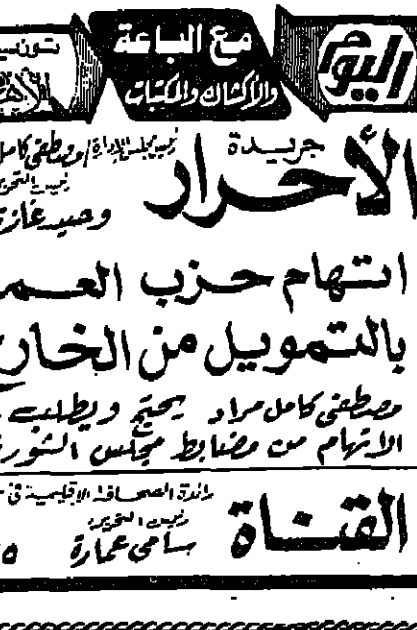 اليوم
مع الباعة
والأكشاك والمكتبات
جريدة
الأحرار
رئيس مجلس الإدارة / مصطفى كامل
رئيس التحرير
وحيد غازى
اتهام حزب العمـ
بالتمويل من الخار
مصطفى كامل مراد يحتج ويطلب
الاتهام من مضابط مجلس الشورى
القناة
رائدة الصحافة الإقليمية فى
رئيس التحرير
سامى عمارة